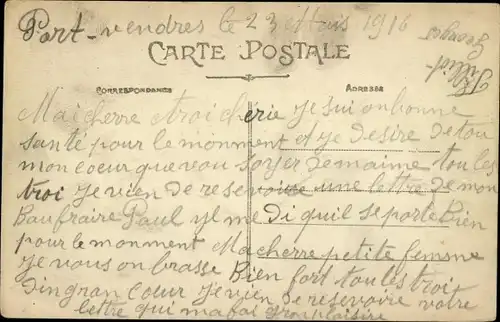 Port-vendres le 23 Mars 1916
Georges
CARTE POSTALE
CORRESPONDANCE
ADRESSE
Maicherre atroi cherie je sui onbonne
santé pour le monment et je desire De tou
mon coeur que vou soyer De maime tou les
troi je vien de reservoire une lettre De mon
Baufraire Paul yl me di quil se porte Bien
pour le monment Macherre petite femme
je vous on brasse Bien fort tou les troi
Din gran coeur je vien de reservoire votre
lettre qui ma fai gron plaisire